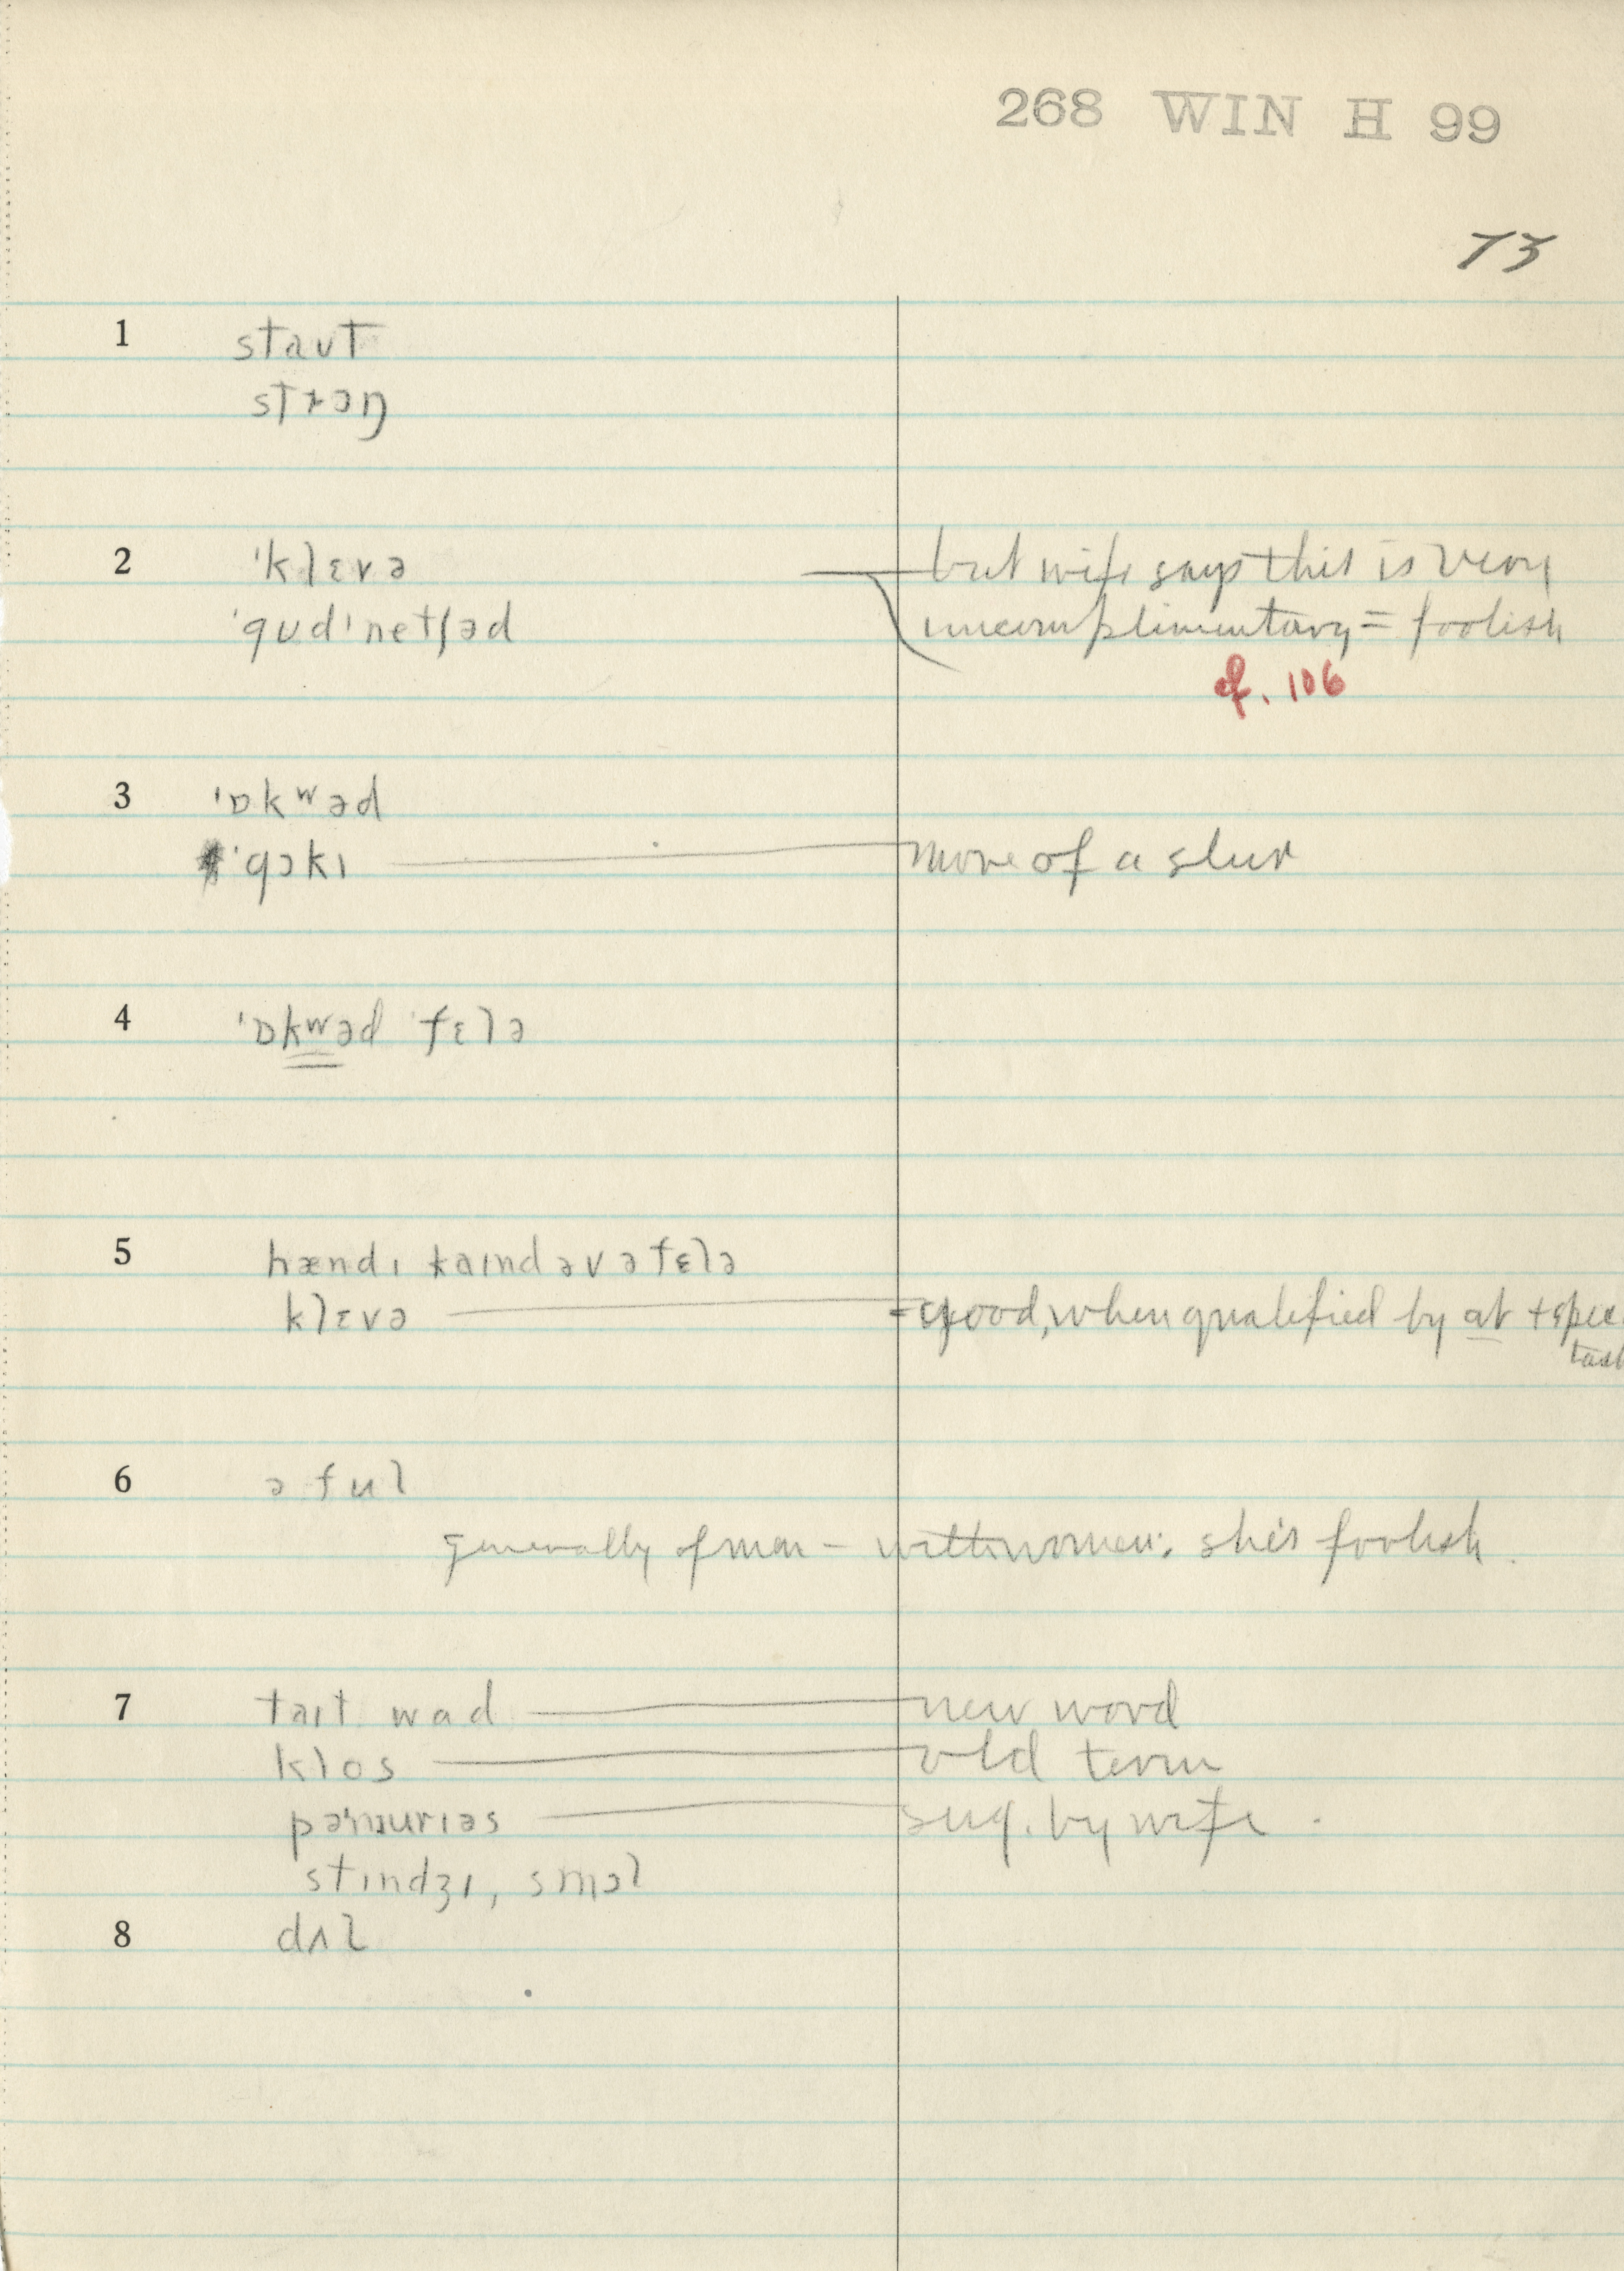 268 WIN H 99
73
1 staʊt
strɔŋ
2 ˈklɛvə but wife says this is very
ˈgʊdˈnetʃəd uncomplimentary = foolish
cf. 106
3 ˈɒkʷəd
ˈgɔkɪ more of a slur
4 ˈɒkʷəd ˈfɛlə
5 hændɪ kaɪnd əv ə fɛlə
klɛvə = good, when qualified by at + spec
task
6 ə ful
generally of man – with women: she's foolish.
7 taɪt wad new word
klos old term
sug. by wife.
stɪndʒɪ, smɔl
8 dʌl